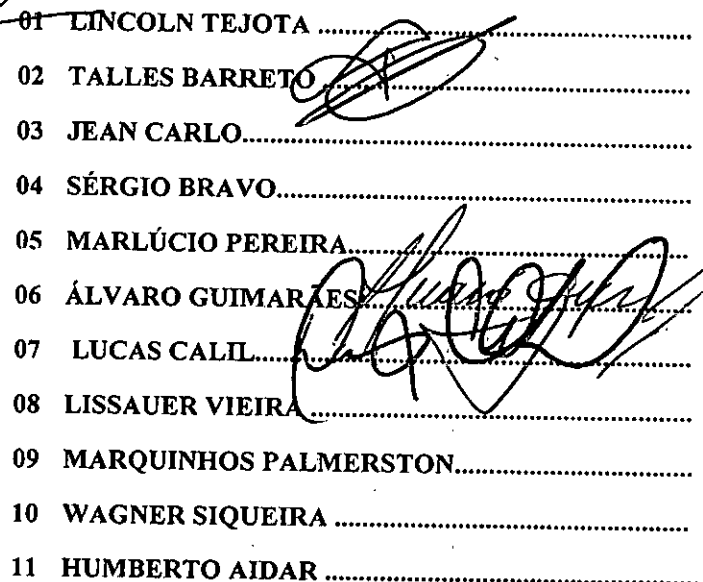 01 LINCOLN TEJOTA ..................................................
02 TALLES BARRETO ..................................................
03 JEAN CARLO..................................................
04 SÉRGIO BRAVO..................................................
05 MARLÚCIO PEREIRA..................................................
06 ÁLVARO GUIMARÃES
07 LUCAS CALIL..................................................
08 LISSAUER VIEIRA ..................................................
09 MARQUINHOS PALMERSTON..................................................
10 WAGNER SIQUEIRA ..................................................
11 HUMBERTO AIDAR ..................................................